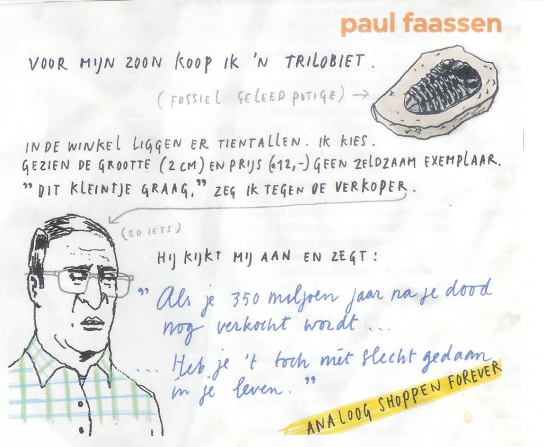 paul faassen
VOOR MIJN ZOON KOOP IK 'N TRILOBIET.
(FOSSIEL GELEEDPOTIGE) →
IN DE WINKEL LIGGEN ER TIENTALLEN. IK KIES.
GEZIEN DE GROOTTE (2 CM) EN PRIJS (€12,-) GEEN ZELDZAAM EXEMPLAAR.
" DIT KLEINTJE GRAAG," ZEG IK TEGEN DE VERKOPER.
(ZO IETS)
HIJ KIJKT MIJ AAN EN ZEGT:
" Als je 350 miljoen jaar na je dood
nog verkocht wordt ...
... Heb je 't toch niet slecht gedaan
in je leven. "
ANALOOG SHOPPEN FOREVER